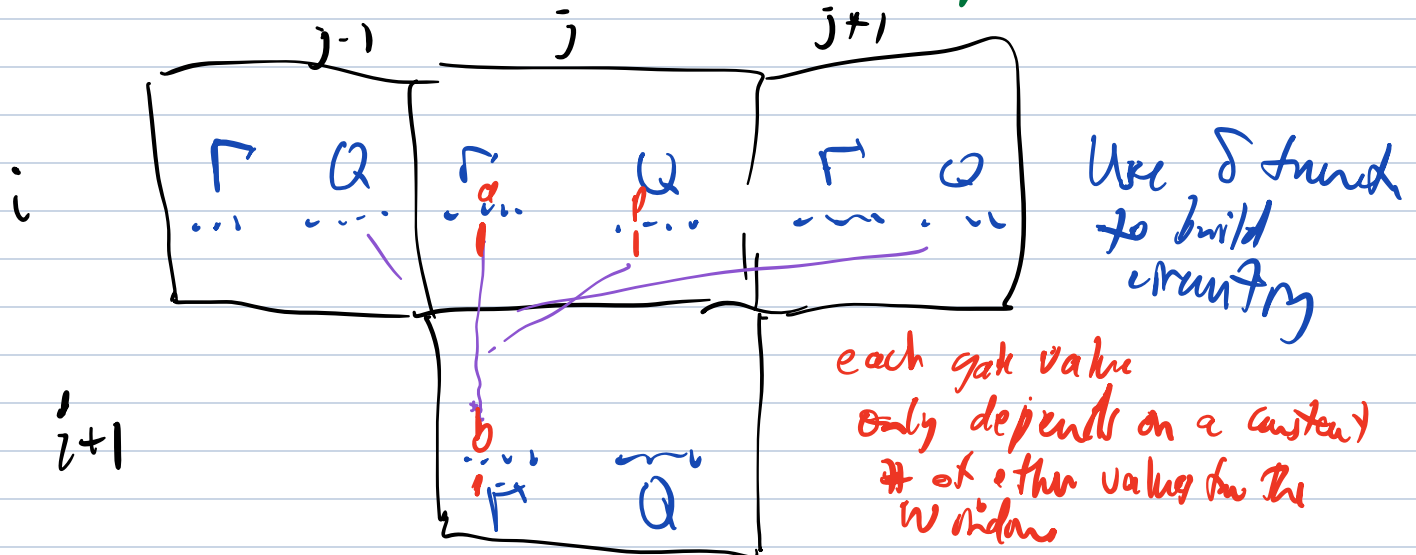 j-1 j j+1
i Γ Q Γ Q Γ Q
a p
1 1
Use δ
to build
circuitry
each gate value
only depends on a constant
# of other values from the
window
i+1
b
1
Γ Q